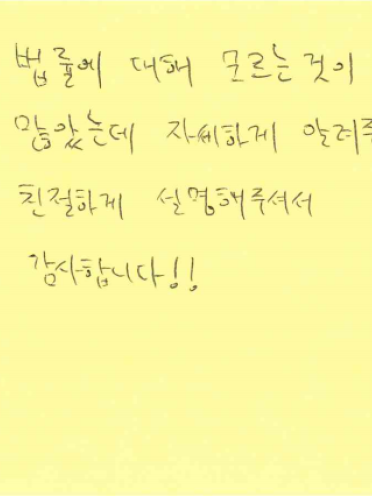 법률에 대해 모르는 것이
많았는데 자세하게 알려주
친절하게 설명해주셔서
감사합니다!!